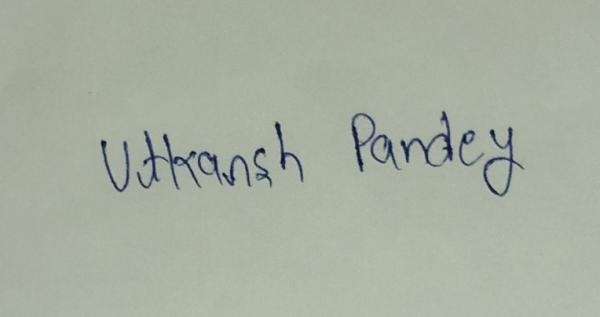 Utkansh Pandey